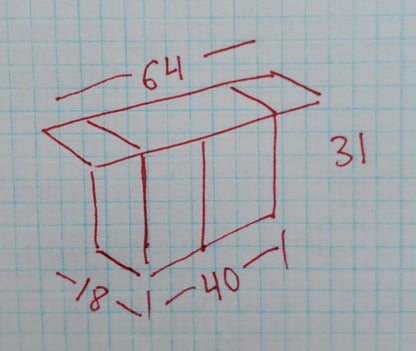 64
31
18
40